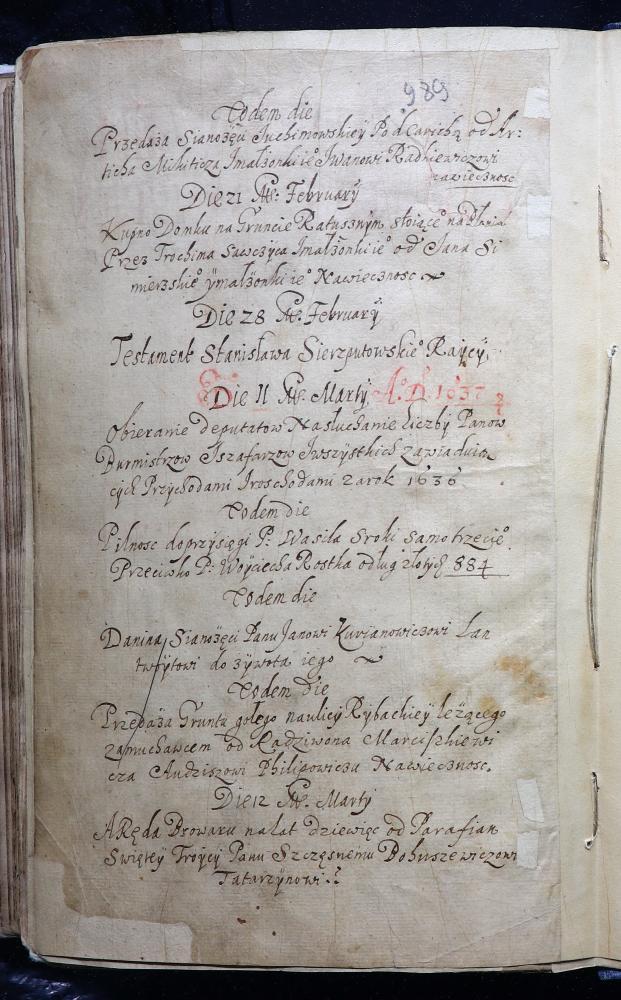 989
Eodem die
Przedaża Sianożęci Juchimowskiey Pod Carichą od Ar:
ticha Mikiticza Jmałżonki ie° Jwanowi Radkiewiczowi
nawiecznosc
Die 21 Februarÿ
Kupno Domku na Gruncie Ratusznym stoiące° na
Przez Trochima Jmałżonki ie° od Jana Si
mierzskie° ÿmałżonki ie° Nawiecznosc
Die 28 Februarÿ
Testament Stanisława Sierzputowskie° Raÿcÿ
Die 11 Martÿ A°. D. 1637
Obieranie deputatow Nasłuchanie Liczby Panow
Burmistrzow Jszafarzow Jwszÿstkich zawiaduią
cÿch Przÿchodami Jroschodami zarok 1636
Eodem die
Pilnosc doprzÿsięgi P: Wasila Sroki samotrzecie°
Przeciwko P: Woÿciecha Rostka odług złotÿch 884
Eodem die
Danina Sianożęci Panu Janowi Kurianowiczowi Lan
twoÿtowi do żÿwota iego
Eodem Die
Przedaża Gruntu gołego naulicÿ Rÿbackieÿ leżącego
zamuchawcem od Radziwona Marciszkiewi
cza Audziszowi Philipowiczu Nawiecznosc.
Die 12 Martÿ
ARęda Browaru nalat dziewięc od Parafian
Swiętey Troÿcÿ Panu Szczęsnemu Bohuszewiczowi
Tatarzÿnowi